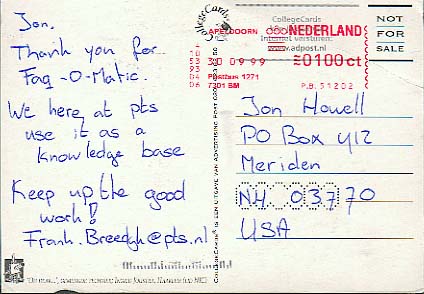 Jon.
Thank you for
Faq-O-Matic.
We here at pts
use it as a
knowledge base
Keep up the good
work!
Frank.Breedijk@pts.nl
CollegeCards
CollegeCards
Internet versturen:
www.adpost.nl
APELDOORN
NEDERLAND
30 09 99
0100 ct
Postbus 1271
7301 BM
P.B. 51202
NOT
FOR
SALE
COLLEGECARDS IS EEN UITGAVE VAN ADVERTISING POST
Jon Howell
PO Box 412
Meriden
NH 03770
USA